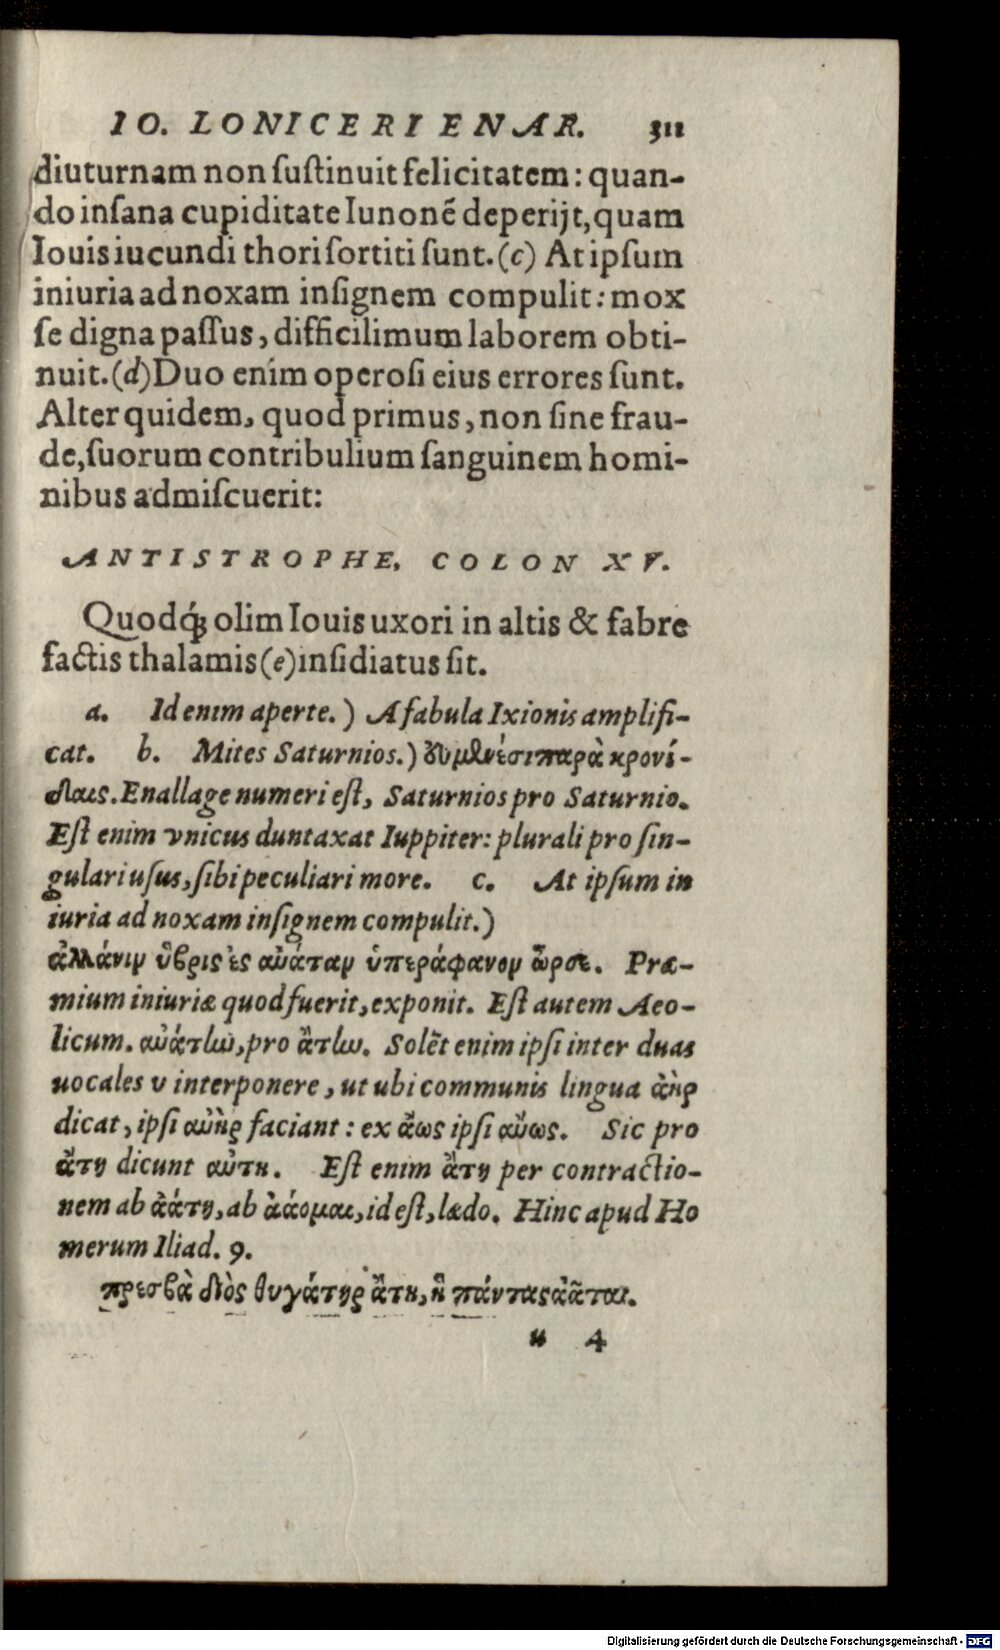 IO. LONICERI ENAR. 311
diuturnam non ſuſtinuit felicitatem: quan-
do inſana cupiditate Iunonē deperijt, quam
Iouis iucundi thori ſortiti ſunt. (c) At ipſum
iniuria ad noxam inſignem compulit: mox
ſe digna paſſus, difficilimum laborem obti-
nuit. (d) Duo enim operoſi eius errores ſunt.
Alter quidem, quod primus, non ſine frau-
de, ſuorum contribulium ſanguinem homi-
nibus admiſcuerit:
ANTISTROPHE. COLON XV.
Quodq́ꝫ olim Iouis uxori in altis & fabre
factis thalamis (e) inſidiatus ſit.
a. Id enim aperte.) A fabula Ixionis amplifi-
cat. b. Mites Saturnios.) ἐυμενέσι παρὰ κρονί-
δαις. Enallage numeri eſt, Saturnios pro Saturnio.
Eſt enim vnicus duntaxat Iuppiter: plurali pro ſin-
gulari uſus, ſibi peculiari more. c. At ipſum in
iuria ad noxam inſignem compulit.)
ἀλλάνιν ὕβρις ἐς αὐάταν ὑπεράφανον ὦρσε. Præ-
mium iniuriæ quod fuerit, exponit. Eſt autem Aeo-
licum. αὐάτην, pro ἄτην. Solēt enim ipſi inter duas
uocales υ interponere, ut ubi communis lingua ἀὴρ
dicat, ipſi αὐὴρ faciant: ex ἄως ipſi αὔως. Sic pro
ἄτη dicunt αὔτη. Eſt enim ἄτη per contractio-
nem ab ἀάτη, ab ἀάομαι, id eſt, lædo. Hinc apud Ho
merum Iliad. 9.
πρεσβὰ διὸς θυγάτηρ ἄτη, ἣ πάντας ἀᾶται.
u 4
Digitalisierung gefördert durch die Deutsche Forschungsgemeinschaft - DFG